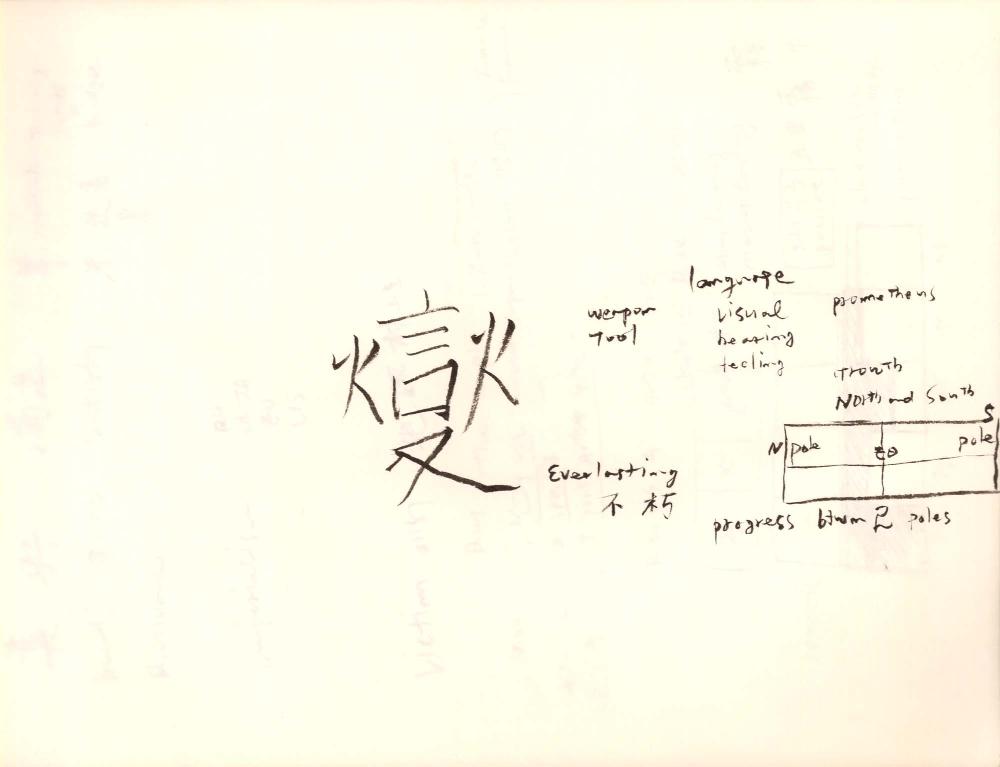 燮
language
weapon
tool
visual
hearing
feeling
prometheus
growth
North and South
S
N pole
pole
Everlasting
不朽
progress btwn 2 poles